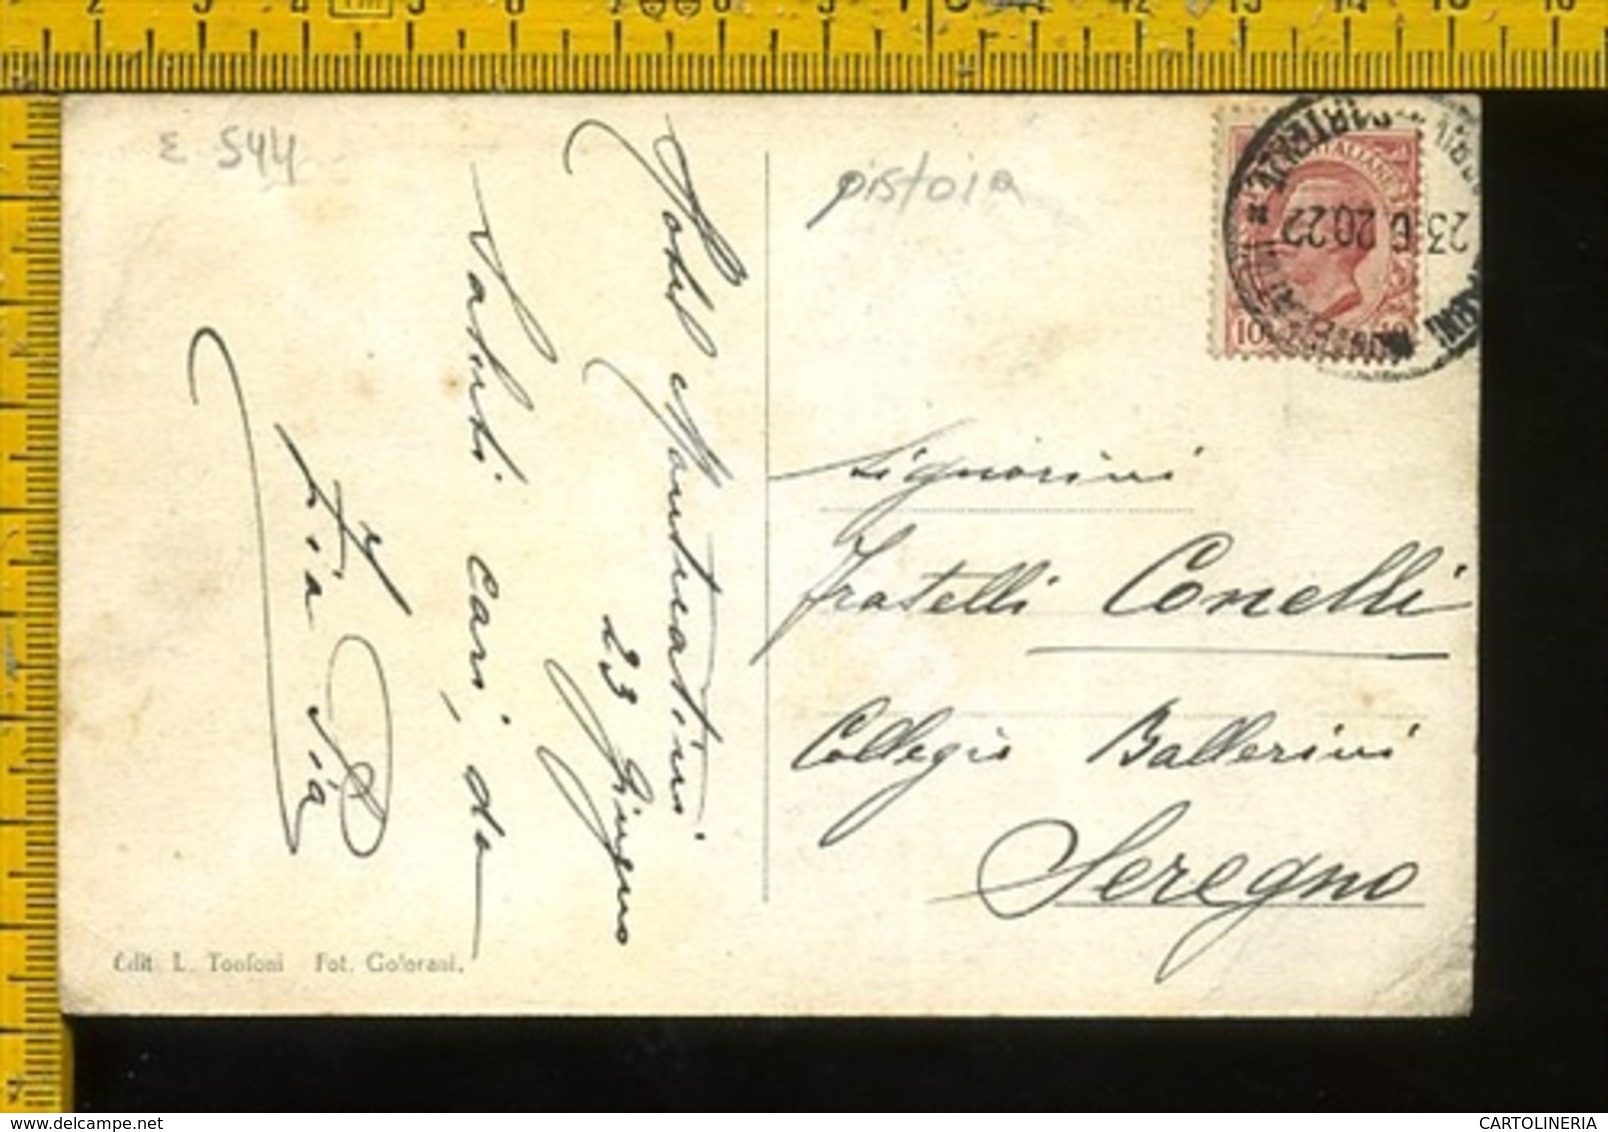 E 544
pistoia
Hotel Montecatini
23 Giugno
Saluti cari, da
Zia Pia
Signorini
Fratelli Conelli
Collegio Ballerini
Seregno
10
23.6 20.22
Edit L. Tonfoni Fot. Goiorani.
www.delcampe.net
CARTOLINERIA